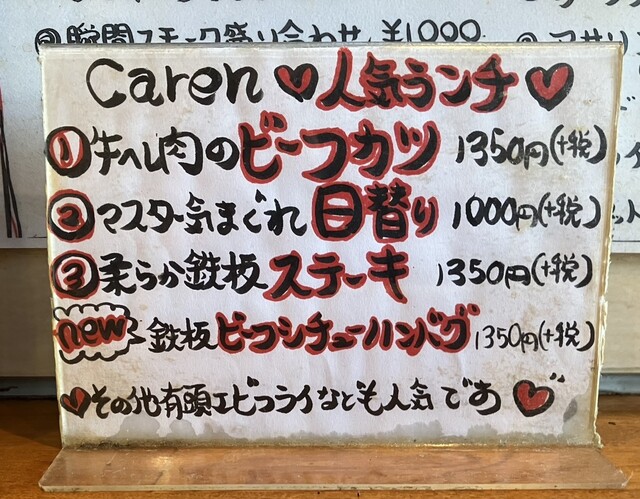 ③瞬間スモーク盛り合わせ ¥1000
Caren ♥人気ランチ♥
①牛ヘレ肉のビーフカツ 1350円(+税)
②マスター気まぐれ日替り 1000円(+税)
③柔らか鉄板ステーキ 1350円(+税)
new 鉄板ビーフシチューハンバグ 1350円(+税)
♥その他有頭エビフライなども人気です♥